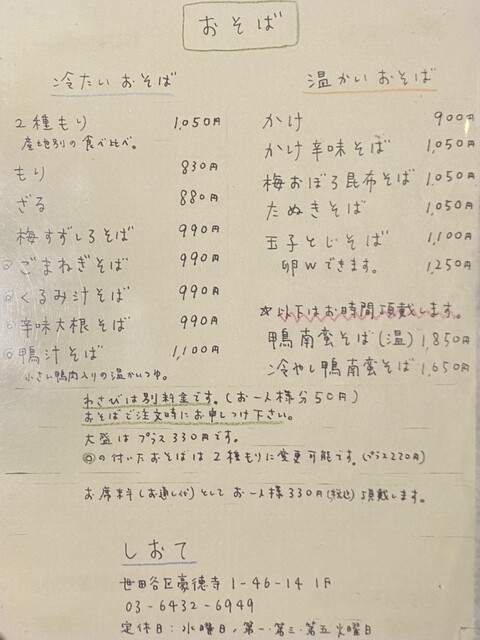 おそば
冷たいおそば
2種もり 1,050円
産地別の食べ比べ。
もり 830円
ざる 880円
梅すずしろそば 990円
◎ごまねぎそば 990円
◎くるみ汁そば 990円
◎辛味大根そば 990円
◎鴨汁そば 1,100円
小さい鴨肉入りの温かいつゆ。
温かいおそば
かけ 900円
かけ辛味そば 1,050円
梅おぼろ昆布そば 1,050円
たぬきそば 1,050円
玉子とじそば 1,100円
卵Wできます。 1,250円
☆以下はお時間頂戴します。
鴨南蛮そば(温) 1,850円
冷やし鴨南蛮そば 1,650円
わさびは別料金です。(お一人様分50円)
おそばご注文時にお申しつけ下さい。
大盛はプラス330円です。
◎の付いたおそばは2種もりに変更可能です。(プラス220円)
お席料(お通し代)としてお一人様330円(税込)頂戴します。
しおて
世田谷区豪徳寺1-46-14 1F
03-6432-6949
定休日:水曜日、第一・第三・第五火曜日